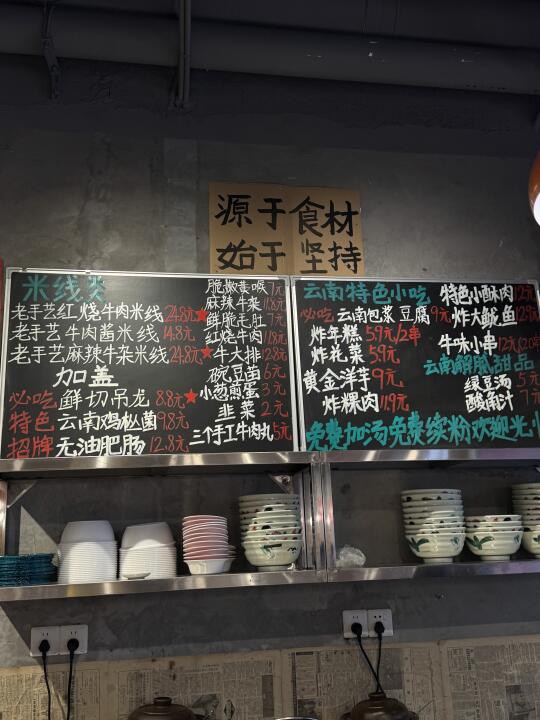 源于食材
始于坚持
米线类
老手艺红烧牛肉米线 24.8元
老手艺牛肉酱米线 14.8元
老手艺麻辣牛杂米线 24.8元
加盖
必吃 鲜切吊龙 8.8元
特色 云南鸡枞菌 9.8元
招牌 无油肥肠 12.8元
脆嫩黄喉 7元
麻辣牛杂 11.8元
鲜脆毛肚 7元
红烧牛肉 11.8元
牛大排 12.8元
豌豆苗 6元
小葱煎蛋 3元
韭菜 2元
三个手工牛肉丸 5元
云南特色小吃
必吃 云南包浆豆腐 9元
炸年糕 5.9元/2串
炸花菜 5.9元
黄金洋芋 9元
炸粿肉 11.9元
特色小酥肉 12元
炸大鱿鱼 12.8元
牛味小串 12元/20串
云南解腻甜品
绿豆汤 5元
酸角汁 7元
免费加汤免费续粉欢迎光